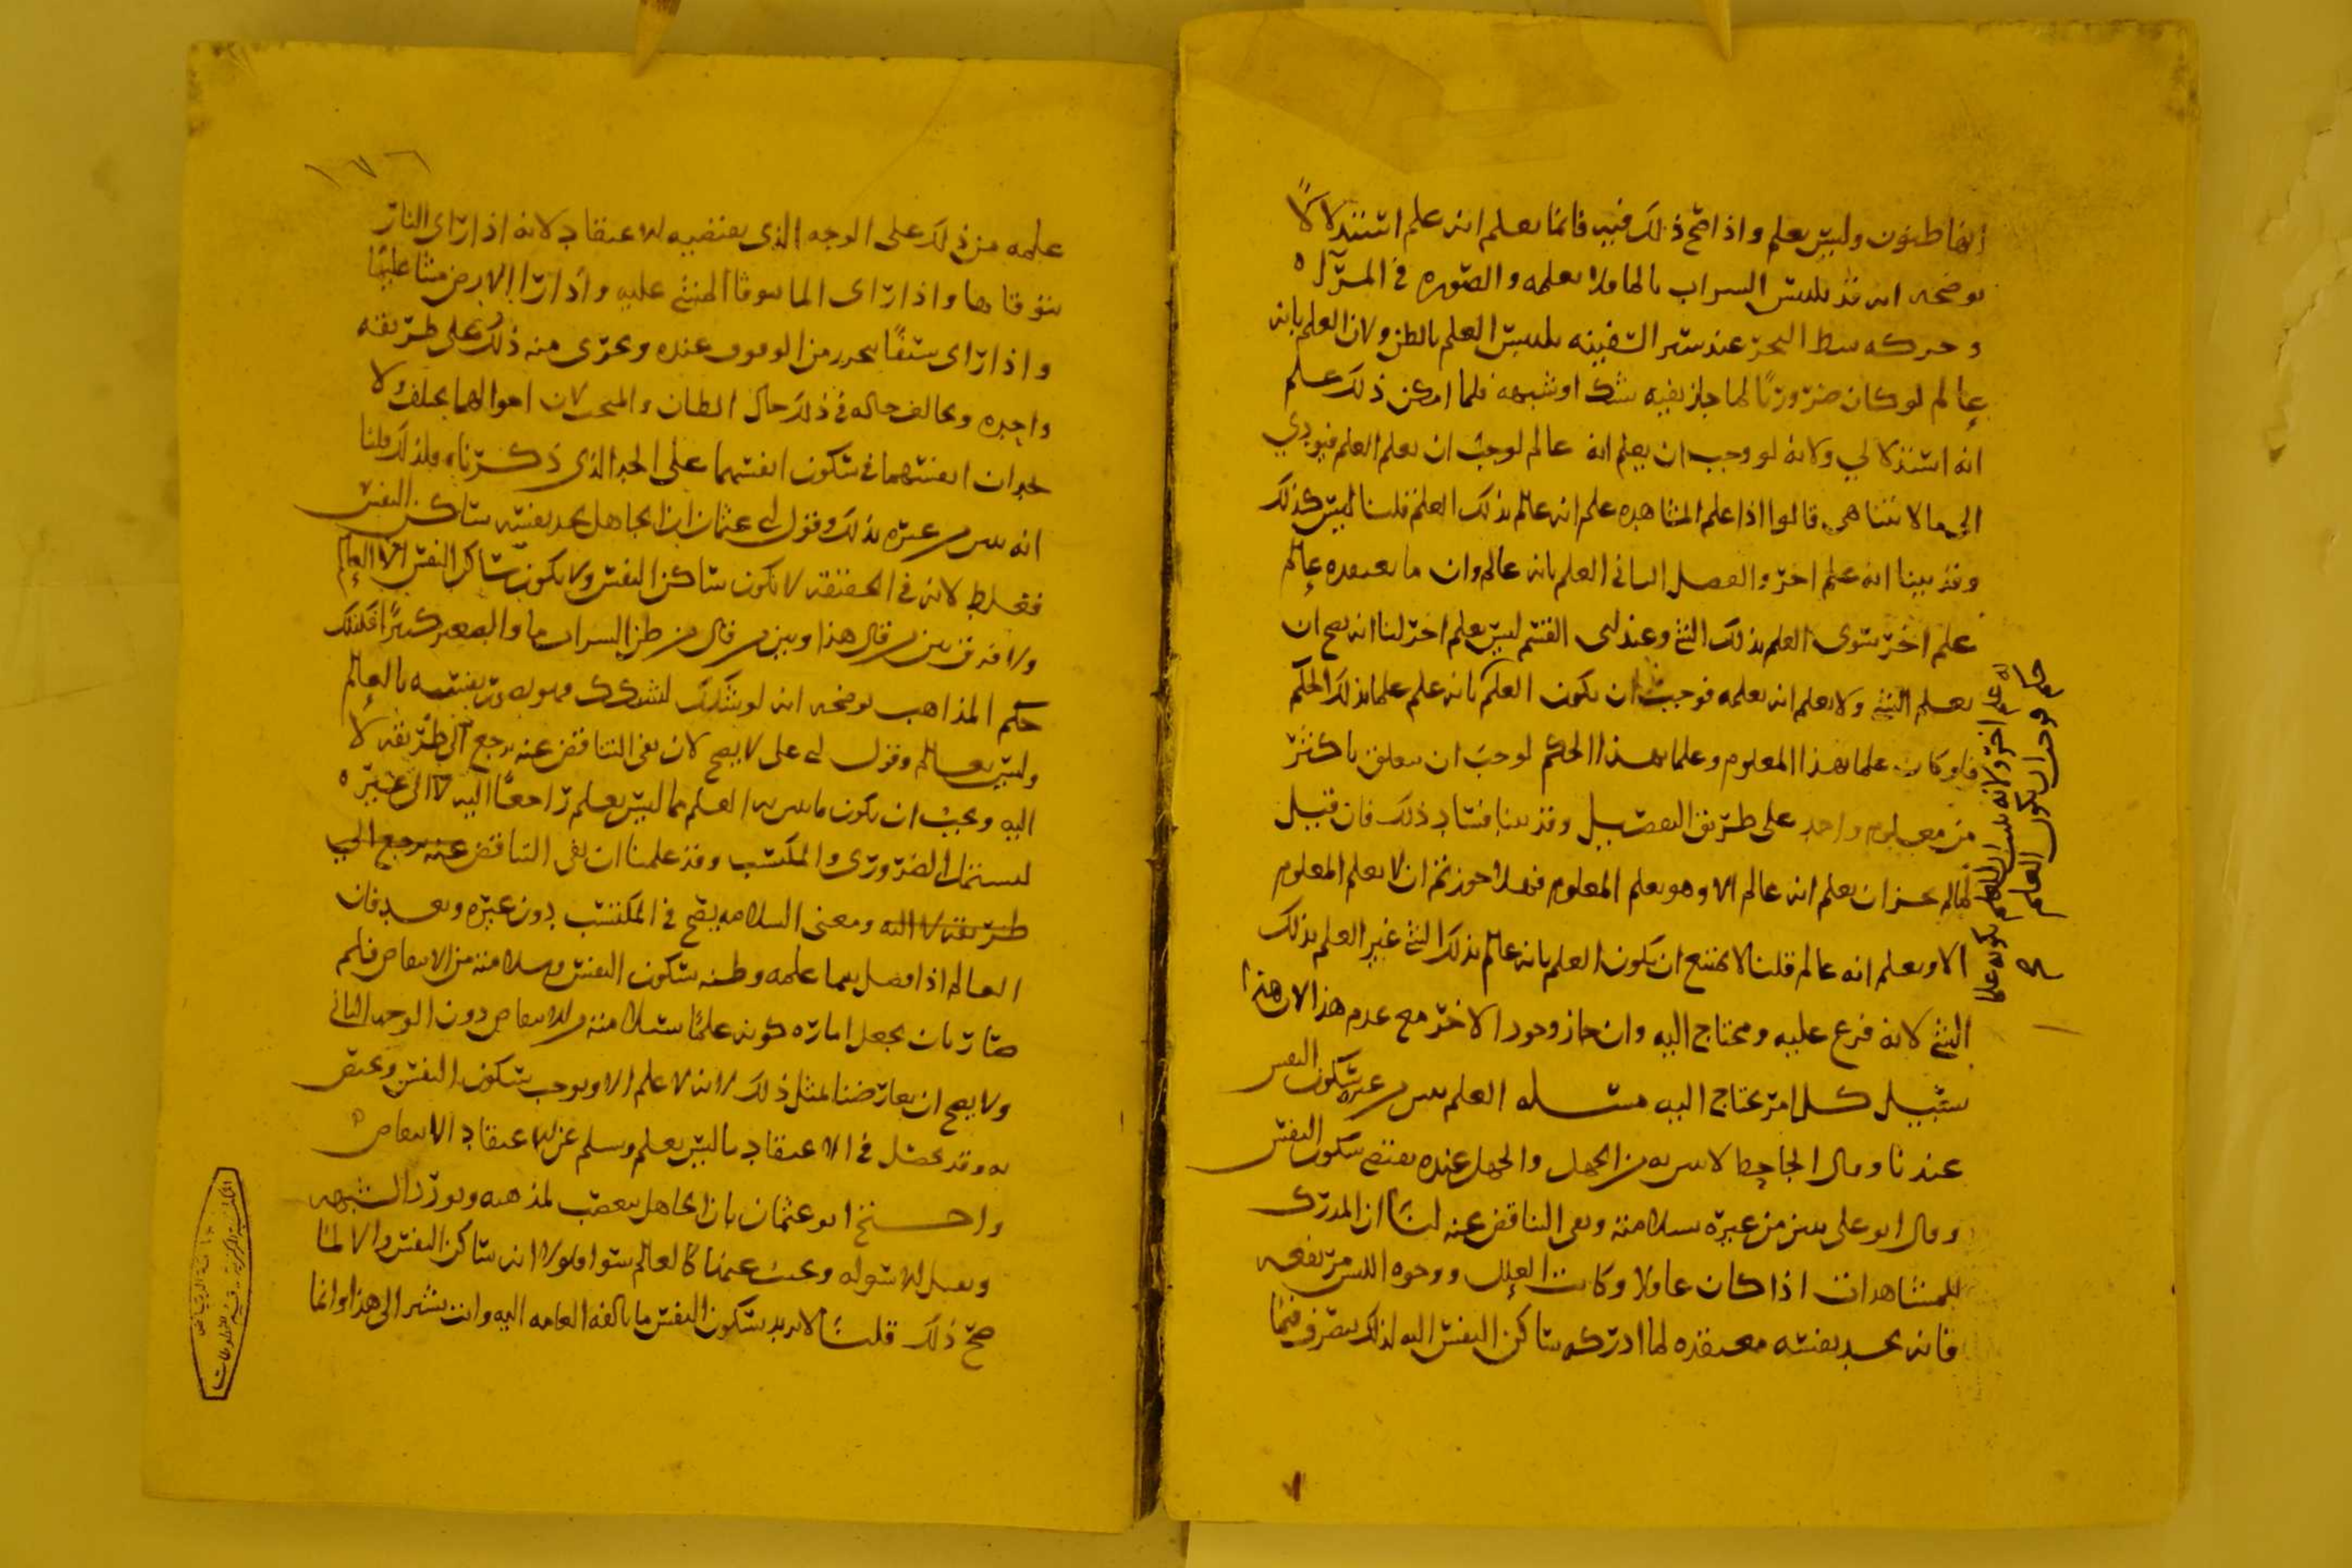 انها ظنون وليس بعلم واذا صح ذلك فيه فانما يعلم انه علم استدلالاً
يوضحه انه قد يلبس السراب بالماء فلا يعلمه والصوره في المرآه
وحركه شط البحر عند سير السفينه يلبس العلم بالظن ولان العلم بانه
عالم لو كان ضرورياً لما جاز فيه شك او شبهه فلما امكن ذلك علم
انه استدلالي ولانه لو وجب ان يعلم انه عالم لوجب ان يعلم العلم فيودي
الى ما لا يتناهى قالوا اذا علم المشاهده علم انه عالم بذلك العلم قلنا ليس كذلك
وقد بينا انه علم اخر والفصل الثاني العلم بانه عالم وان ما يعتقده عالم
علم اخر سوى العلم بذلك الشي وعند ابي القسم ليس بعلم اخر لنا انه يصح ان
يعلم الشي ولا يعلم انه يعلمه فوجب ان يكون العلم بانه علم علما بذلك الحكم
فلو كان علما بهذا المعلوم وعلما بهذا الحكم لوجب ان يتعلق باكثر
من معلوم واحد على طريق التفصيل وقد بينا فساد ذلك فان قيل
لما لم يجز ان يعلم انه عالم الا وهو يعلم المعلوم فهلا جوزتم ان لا يعلم المعلوم
الا ويعلم انه عالم قلنا لا يمتنع ان يكون العلم بانه عالم بذلك الشي غير العلم بذلك
الشي لانه فرع عليه ومحتاج اليه وان جاز وجود الاخر مع عدم هذا لان هذا
سبيل كل امر يحتاج اليه مسله العلم يبين من غيره بسكون النفس
عندنا وقال الجاحظ لا يبين به من الجهل والجهل عنده يقتضي سكون النفس
وقال ابو على يبين من غيره بسلامته ونفي التناقض عنه لنا ان المدرك
للمشاهدات اذا كان عاقلا وكانت العلل ووجوه اللبس مرتفعه
فانه يجد نفسه معتقده لما ادركه ساكن النفس اليه لذلك يتصرف فيما
انه علم اخر ولانه يلبس العلم بكونه علما
فوجب ان يكون العلم
١٧٦
علمه من ذلك على الوجه الذي يقتضيه الاعتقاد لانه اذا راى النار
يتوقاها واذا راى الما يتوقا المشي عليه واذا راا الارض مشا عليها
واذا راى سقفا يحذر من الوقوف عنده ويجرى منه ذلك على طريقه
واحده ويخالف حاله في ذلك حال الظان والمبخت لان احوالهما يختلف ولا
يجدان انفسهما في سكون انفسهما على الحد الذي ذكرناه فلذلك قلنا
انه يبين من غيره بذلك وقول ابي عثمان ان الجاهل يجد نفسه ساكن النفس
فغلط لانه في الحقيقه لا يكون ساكن النفس ولا يكون ساكن النفس الا العالم
ولا فرق بين من قال هذا وبين من قال من ظن السراب ما والصغير كبيرا فكذلك
حكم المذاهب يوضحه انه لو شكك لتشكك فهو يصور نفسه بالعالم
وليس بعالم وقول ابي على لا يصح لان نفي التناقض عنه يرجع الى طريقه لا
اليه ويجب ان يكون ما يبين به العلم مما ليس بعلم راجعا اليه لا الى غيره
ليشتمل الضروري والمكتسب وقد علمنا ان نفي التناقض عنه يرجع الى
طريقه لا اليه ومعنى السلامه يصح في المكتسب دون غيره وبعد فان
العالم اذا فصل بين ما علمه وظنه بسكون النفس وسلامته من الانتقاض فلم
صار بان يجعل اماره كونه علما سلامته من الانتقاض دون الوجه الثاني
ولا يصح ان يعارضنا بمثل ذلك لانه لا علم الا ويوجب سكون النفس ويختص
به وقد يحصل في الاعتقاد ما ليس بعلم وسلم عن الاعتقاد الانتقاض
واحتج ابو عثمان بان الجاهل يتعصب لمذهبه ويورد الشبهه
ويبذل الاسوله ويجيب عنها كالعالم سوا فلولا انه ساكن النفس والا لما
صح ذلك قلنا لا نريد بسكون النفس ما يالفه العامه اليه وانت تشير الى هذا وانما